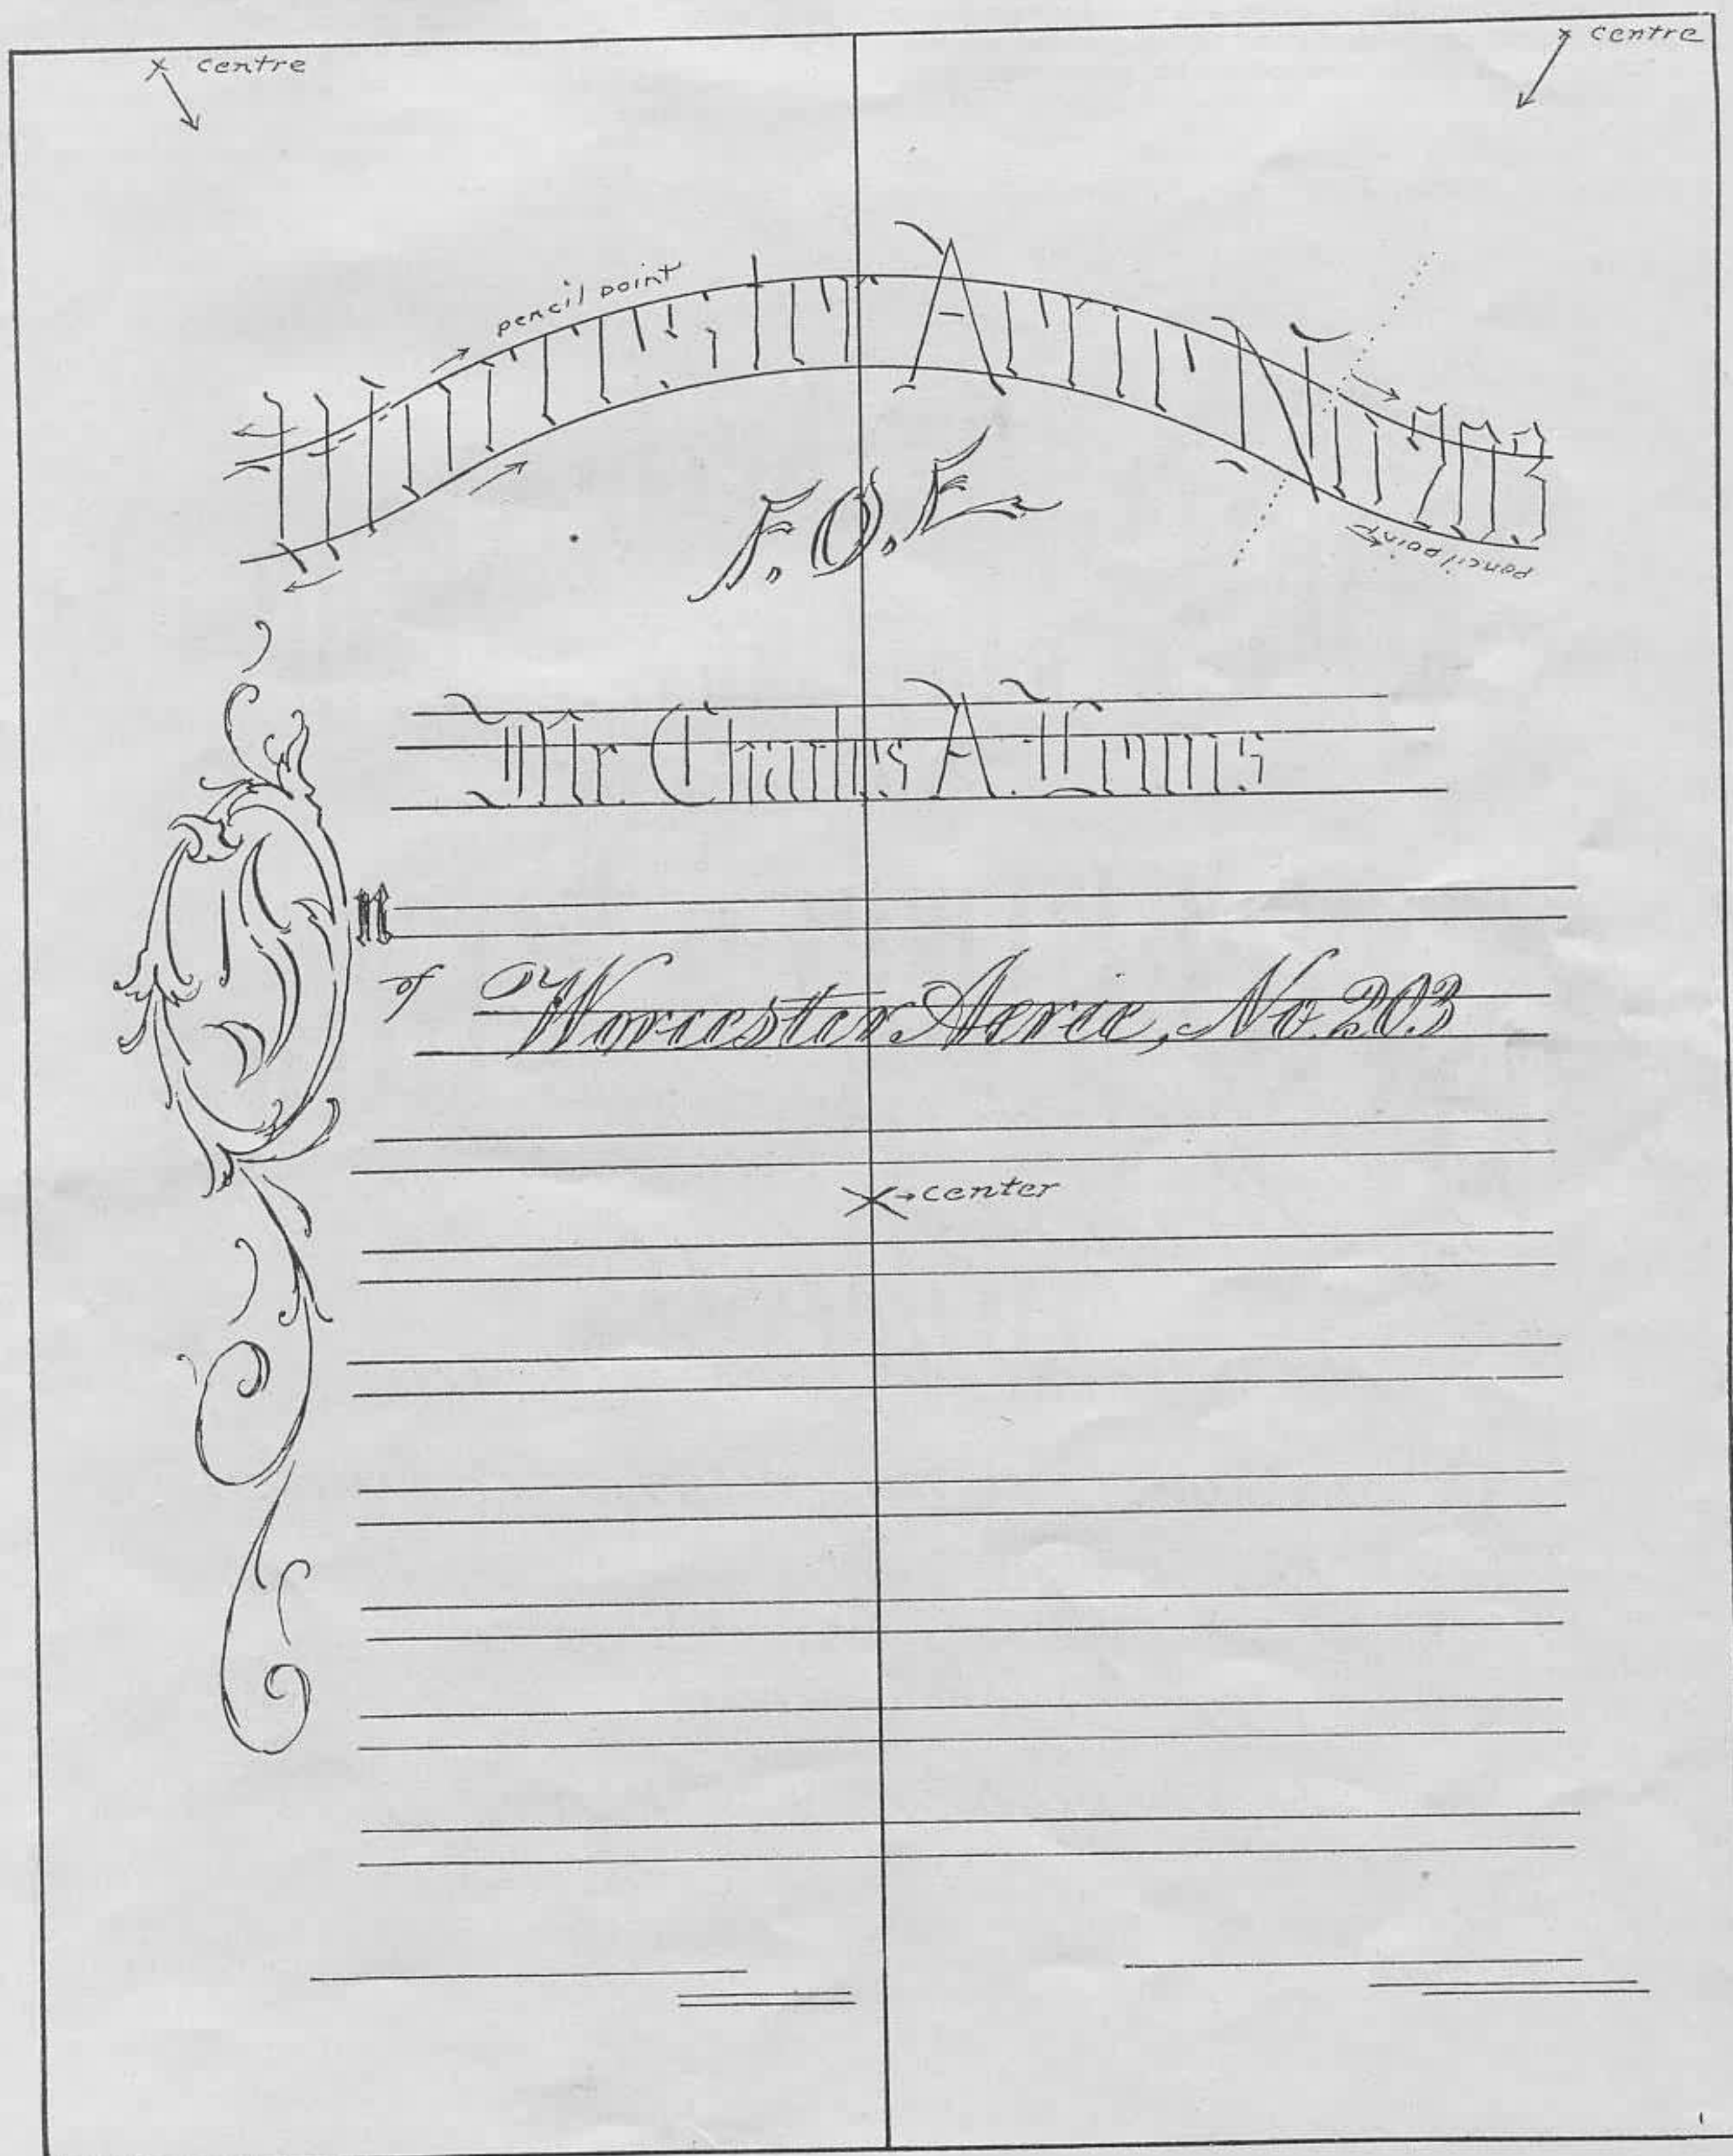 centre
centre
pencil point
Worcester Aerie No 203
F.O.E.
pencil point
Mr. Charles A.
n
of Worcester Aerie, No. 203
center